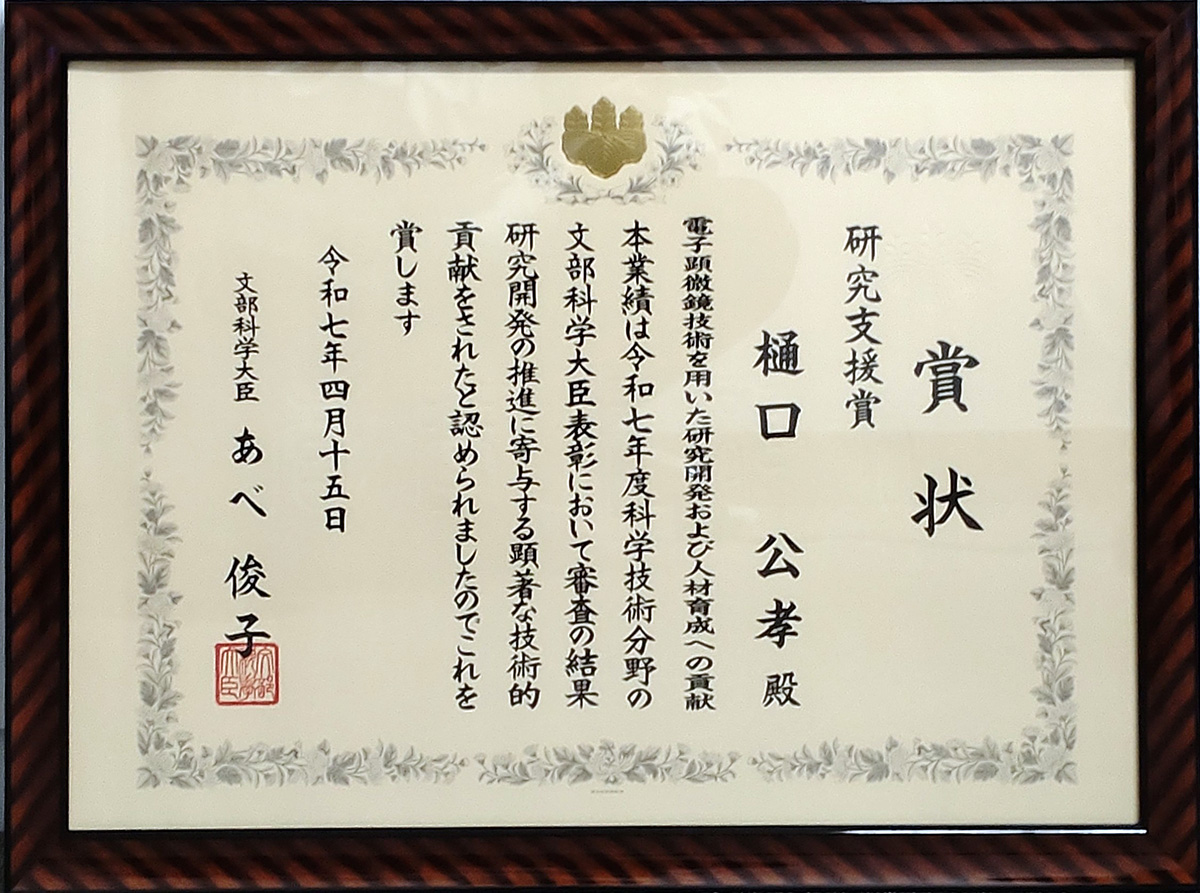 賞状
研究支援賞
樋口 公孝 殿
電子顕微鏡技術を用いた研究開発および人材育成への貢献
本業績は令和七年度科学技術分野の
文部科学大臣表彰において審査の結果
研究開発の推進に寄与する顕著な技術的
貢献をされたと認められましたのでこれを
賞します
令和七年四月十五日
文部科学大臣 あべ 俊子